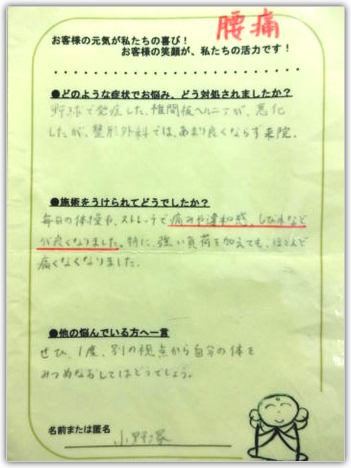 腰痛
お客様の元気が私たちの喜び！
お客様の笑顔が、私たちの活力です！
●どのような症状でお悩み、どう対処されましたか？
野球で発症した、椎間板ヘルニアが、悪化
したが、整形外科では、あまり良くならず来院。
●施術をうけられてどうでしたか？
毎日の体操や、ストレッチで痛みや違和感、しびれなど
が良くなりました。特に、強い負荷を加えても、ほとんど
痛くなくなりました。
●他の悩んでいる方へ一言
ぜひ、1度、別の視点から自分の体を
みつめなおしてはどうでしょう。
名前または匿名
小野塚